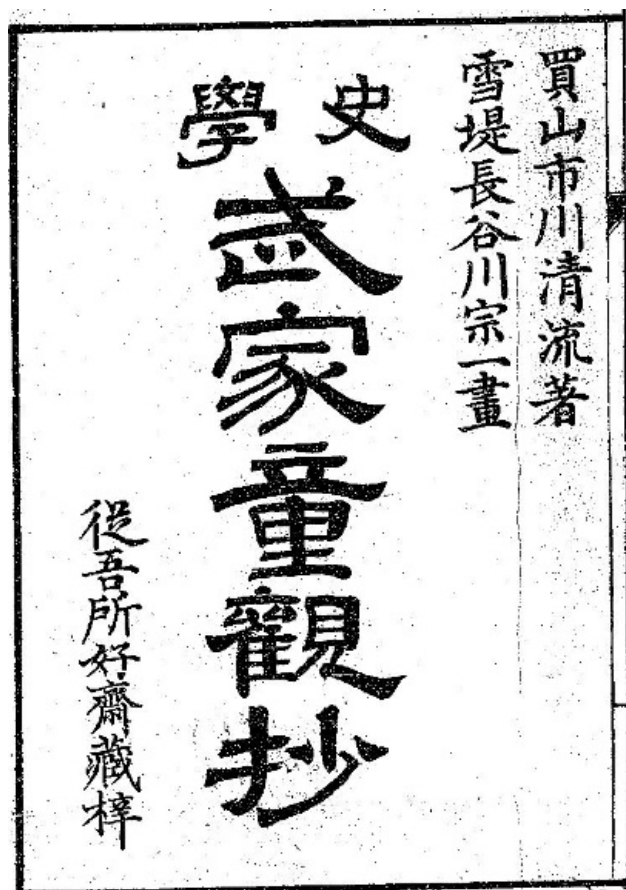 買山市川清流著
雪堤長谷川宗一畫
史學
武家童觀抄
從吾所好齋藏梓